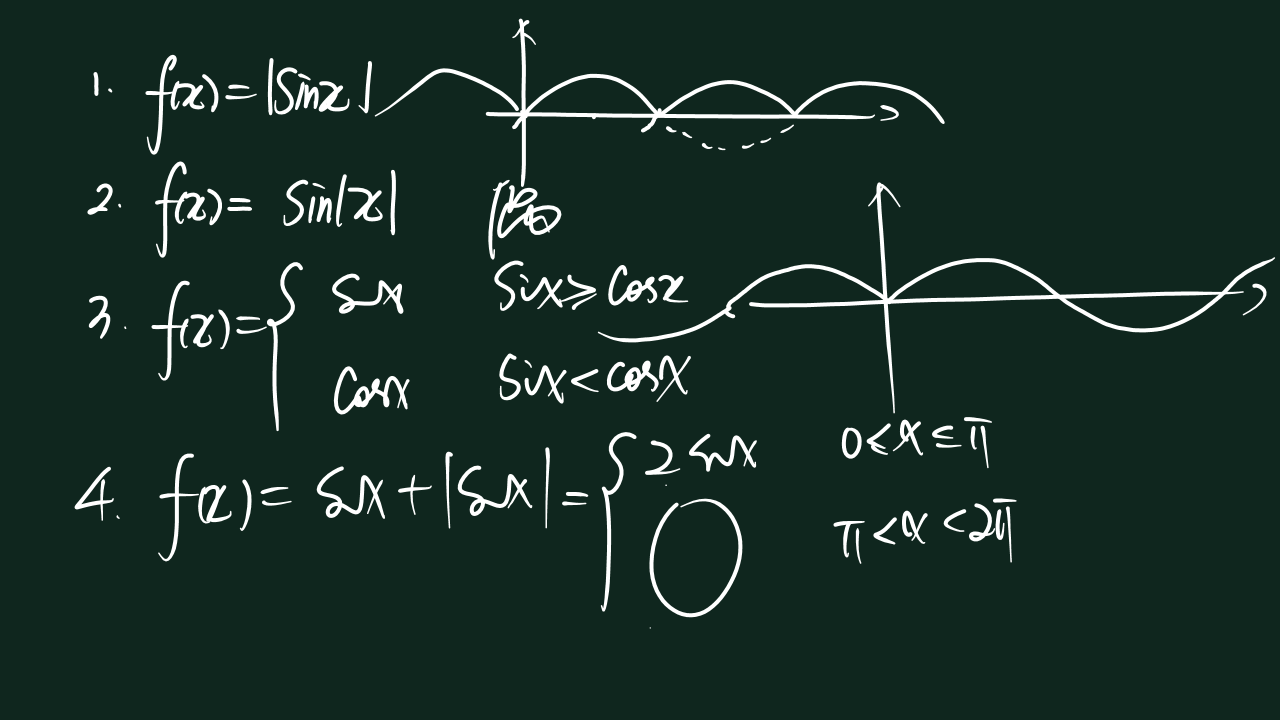 1. f(x)=|sinx|
2. f(x)= sin|x|
3. f(x)={ sinx sinx≥cosx
cosx sinx<cosx
4. f(x)= sinx+|sinx|={ 2sinx 0<x≤π
0 π<x<2π